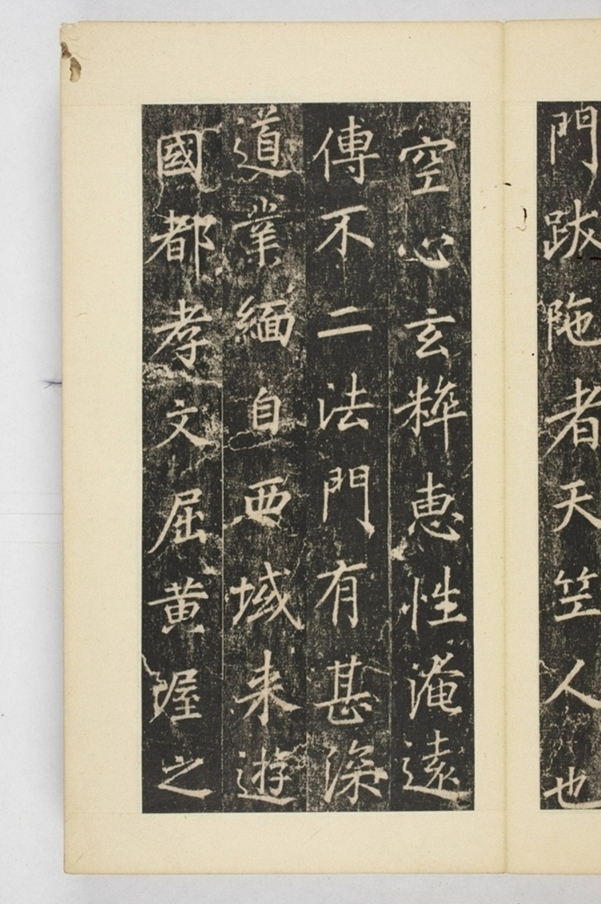 門跋陁者天笁人也
空心玄粹惠性淹遠
傳不二法門有甚深
道業緬自西域来遊
國都孝文屈黄屋之